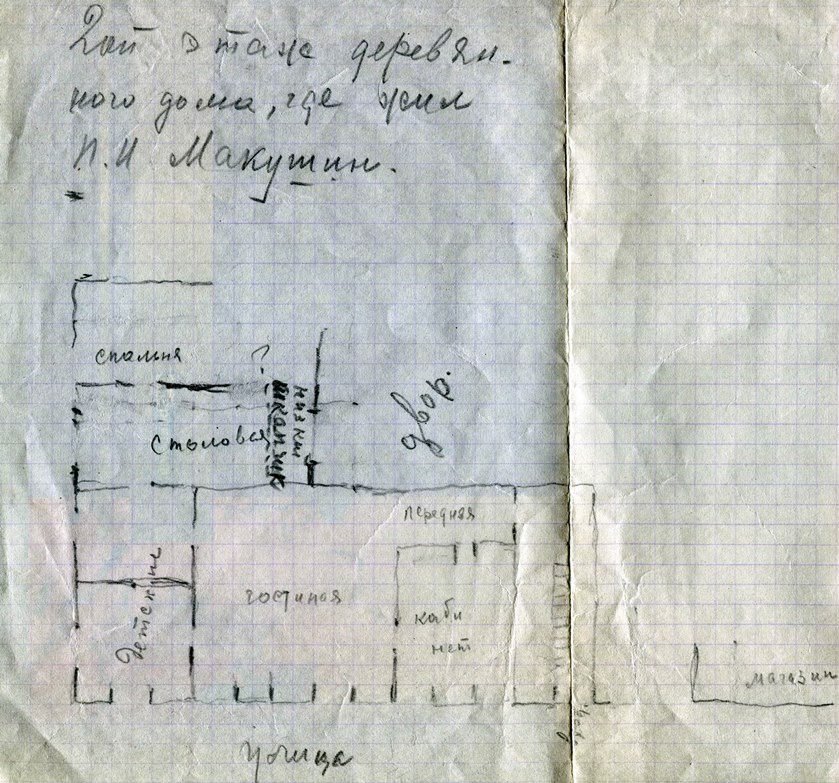 2ой этаж деревян-
ного дома, где жил
П.И Макушин.
спальня
?
низкий
шкапчик
столовая
двор.
передная
детские
гостиная
каби
нет
магазин
улица